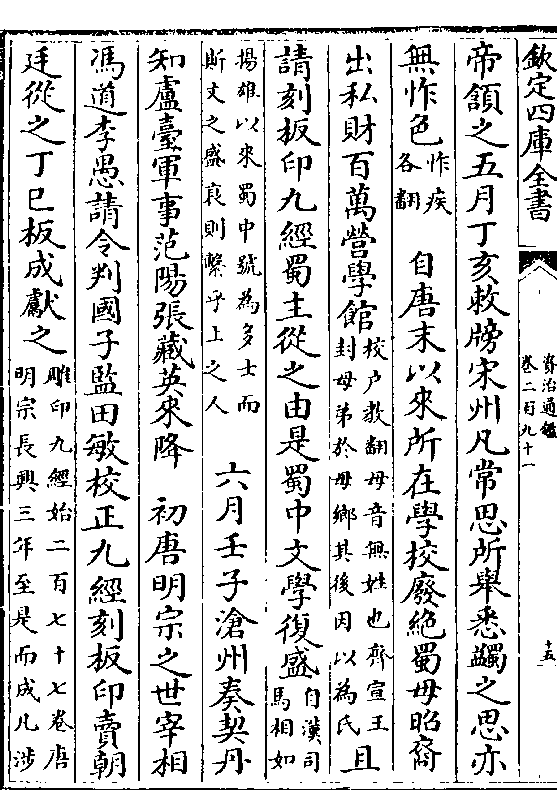 欽定四庫全書
資治通鑑
卷二百九十一
十五
帝頷之五月丁亥敕牓宋州凡常思所舉悉蠲之思亦
無怍色
怍疾
各翻
自唐末以來所在學校廢絶蜀毋昭裔
出私財百萬營學館
校户教翻毋音無姓也齊宣王
封母弟於毋鄉其後因以為氏
且
請刻板印九經蜀主從之由是蜀中文學復盛
自漢司
馬相如
揚雄以來蜀中號為多士而
斯文之盛衰則繫乎上之人
六月壬子滄州奏契丹
知盧臺軍事范陽張藏英來降 初唐明宗之世宰相
馮道李愚請令判國子監田敏校正九經刻板印賣朝
廷從之丁巳板成獻之
雕印九經始二百七十七卷唐
明宗長興三年至是而成凡涉